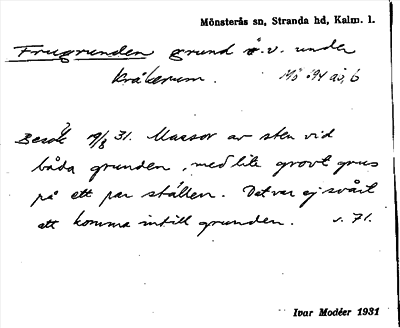 Mönsterås sn, Stranda hd, Kalm. l.
Frugrunden grund ö.v. under
Kråkerum. Mö 94 aå 6
Besök 19/8 31. Massor av sten vid
båda grunden, med lite grovt grus
på ett par ställen. Det var ej svårt
att komma intill grunden. s. 71.
Ivar Modéer 1931